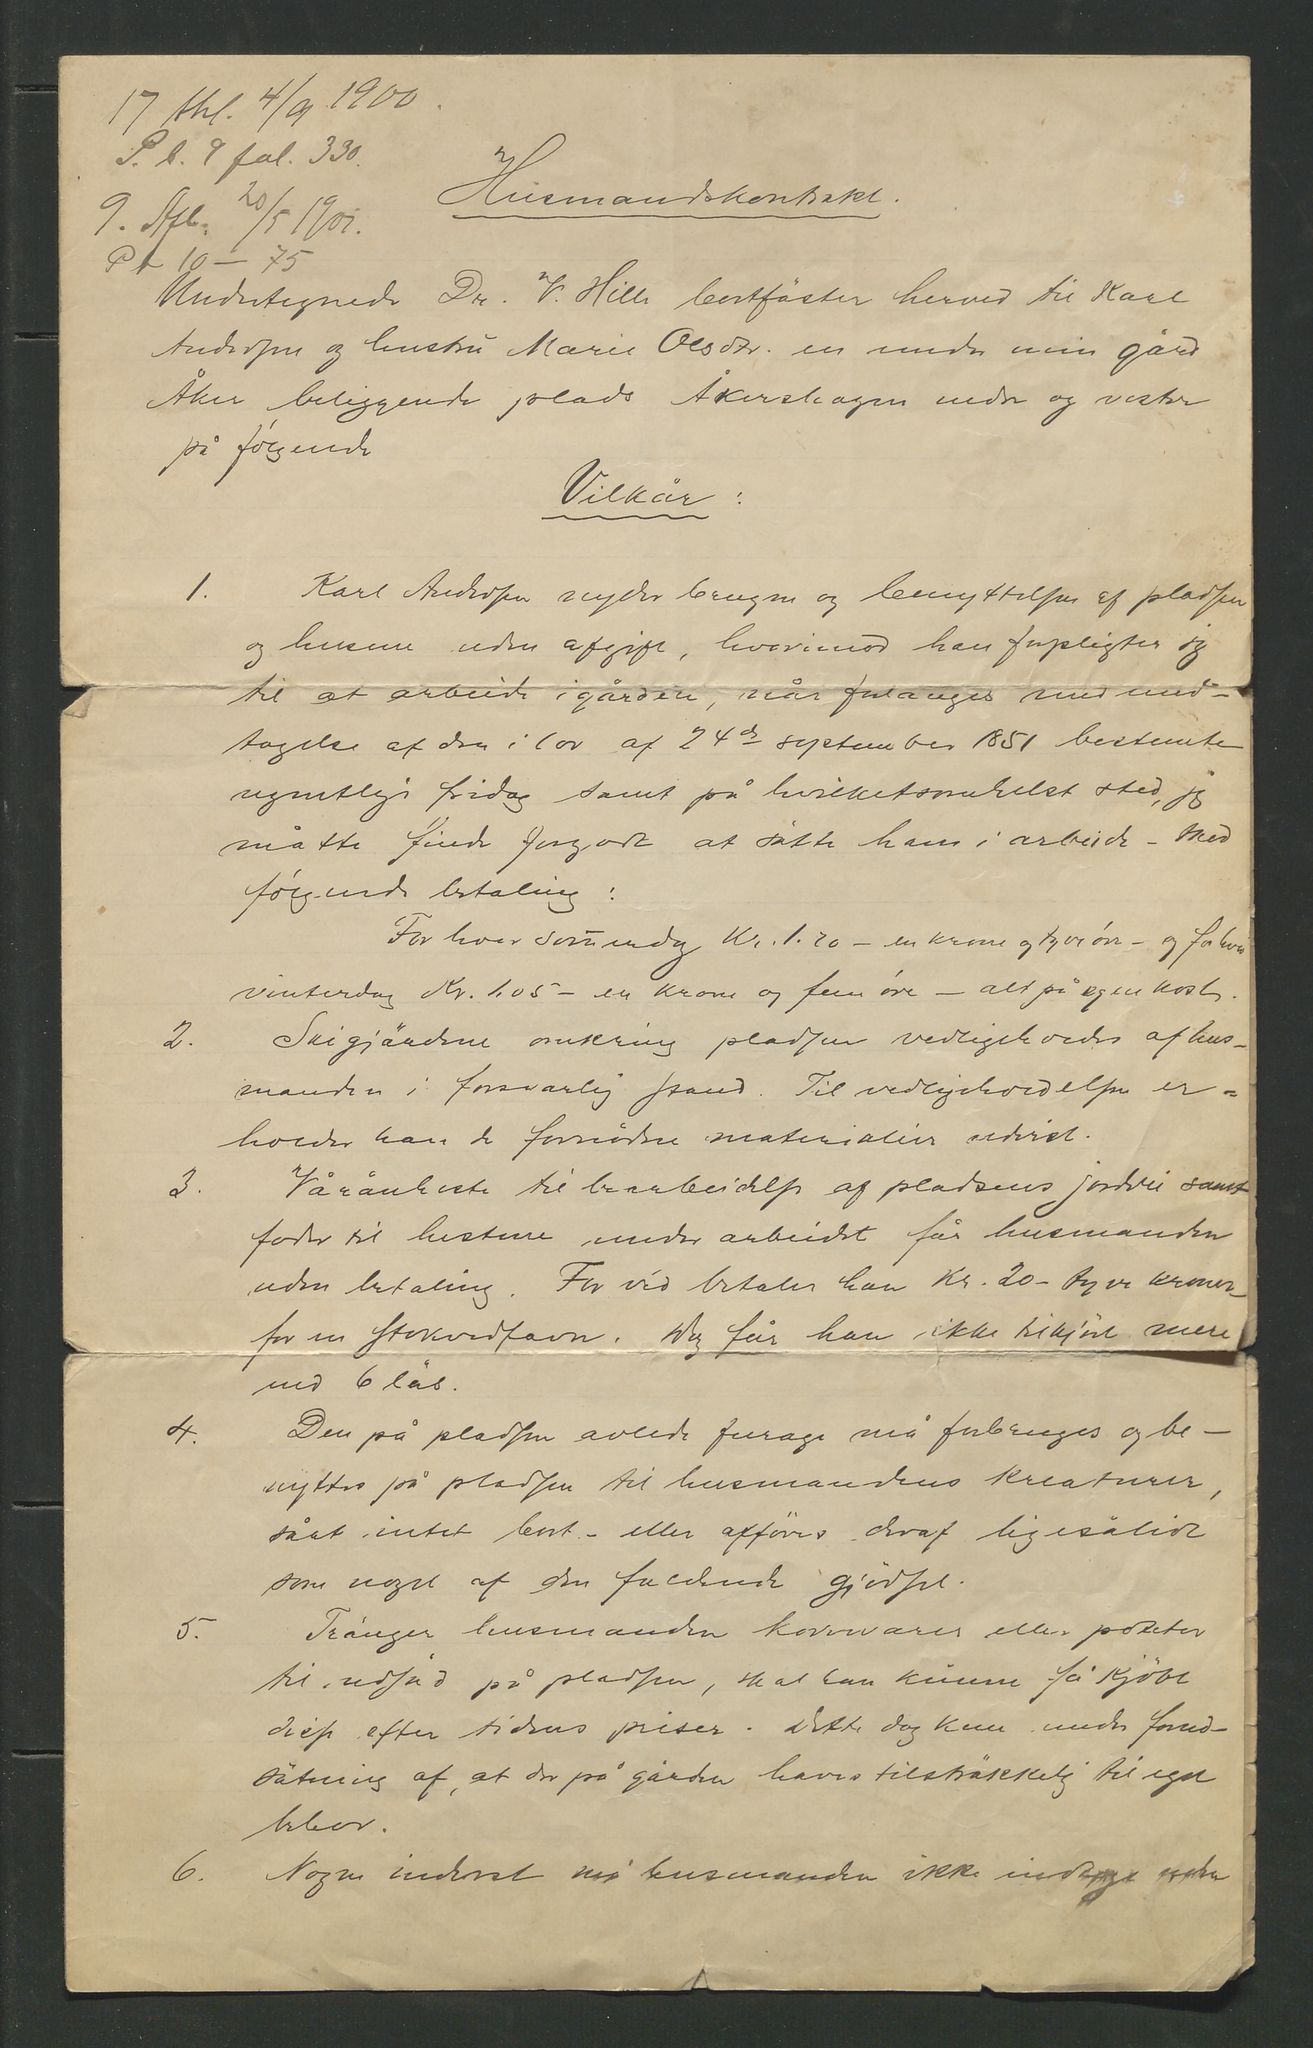 17 thl. 4/9 1900.
P. b. 9 fol. 330.
9. Afl. 20/5 1901.
Pb 10 – 75
Husmandskontrakt.
Undertegnede Dr. V. Hille bortfäster herved til Karl
Andersen og hustru Marie Olsdtr. en under min gård
Åker beliggende plads Åkershagen nedre og vestre
på følgende
Vilkår:
1. Karl Andersen nyder brugen og benyttelsen af pladsen
og husene uden afgift, hvorimod han forpligter sig
til at arbeide i gården, når forlanges med und-
tagelse af den i lov af 24de september 1851 bestemte
ugentlige fridag samt på hvilketsomhelst sted, jeg
måtte finde forgodt at sätte ham i arbeide – Med
følgende betaling:
For hver sommerdag Kr. 1.20 – en krone og tyve öre – og for hver
vinterdag Kr. 1.05 – en krone og fem öre – alt på egen kost.
2. Skigjärdene omkring pladsen vedligeholdes af hus-
manden i forsvarlig stand. Til vedligeholdelsen er-
holder han de fornödne materialier udvist.
3. Våránheste til bearbeidelse af pladsens jordvei samt
foder til hestene under arbeidet får husmanden
uden betaling. For ved betaler han Kr. 20 – tyve kroner –
for en stokvedfavn. Dog får han ikke tilkjört mere
end 6 läs.
4. Den på pladsen avlede furage må forbruges og be-
nyttes på pladsen til husmandens kreaturer,
såat intet bort- eller afföres deraf ligesålidt
som noget af den faldende gjödsel.
5. Tränger husmanden kornvarer eller poteter
til udsäd på pladsen, skal han kunne få kjöbt
disse efter tidens priser. Dette dog kun under forud-
sätning af, at der på gården haves tilsträkkelig til eget
behov.
6. Nogen inderst må husmanden ikke indtage uden